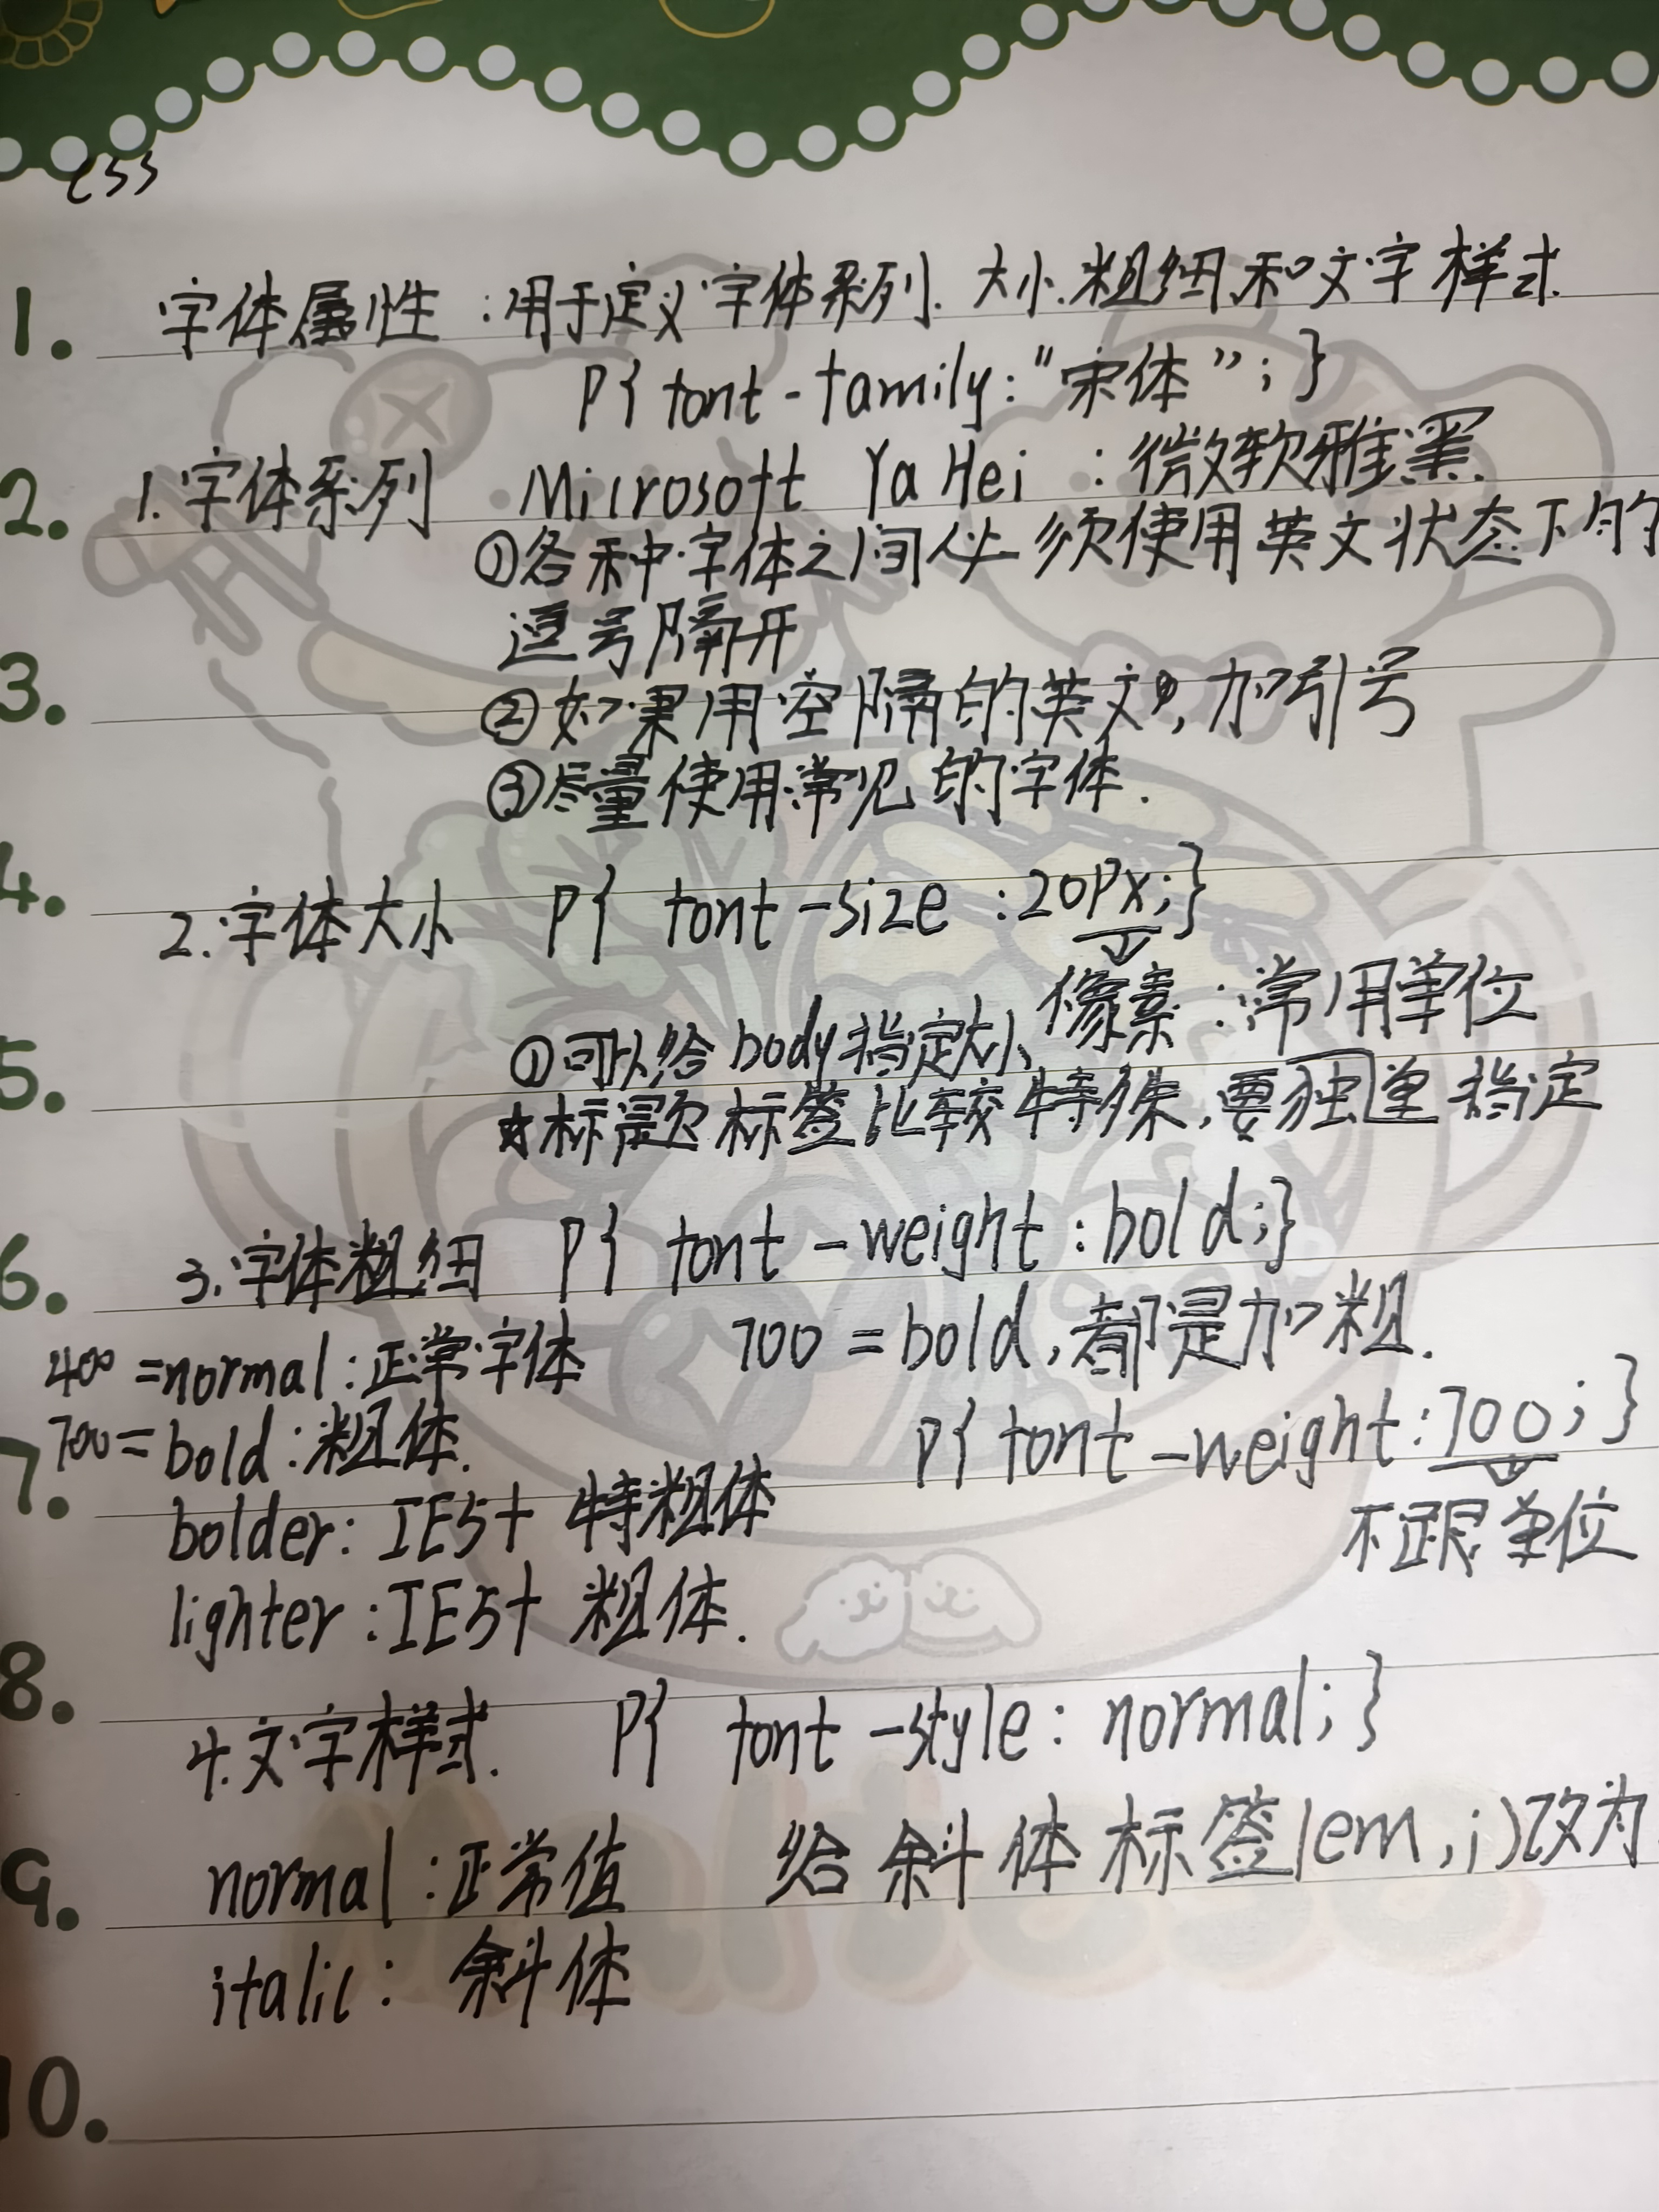 css
1. 字体属性：用于定义字体系列.大小.粗细和文字样式.
P{ font-family:"宋体"; }
2. 1.字体系列 Microsoft YaHei：微软雅黑.
①各种字体之间必须使用英文状态下的
逗号隔开
3. ②如果用空隔的英文,加引号
③尽量使用常见的字体.
4. 2.字体大小 P{ font-size:20Px;}
像素：常用单位
5. ①可以给body指定大小
☆标题标签比较特殊,要独 指定
6. 3.字体粗细 P{ font-weight:bold;}
400=normal:正常字体 700=bold,都是加粗.
7. 700=bold:粗体. P{ font-weight:700;}
bolder: IE5+ 特粗体 不跟单位
lighter:IE5+ 粗体.
8. 4.文字样式. P{ font-style: normal; }
9. normal:正常值 给斜体标签(em,i)改为
italic: 斜体
10.